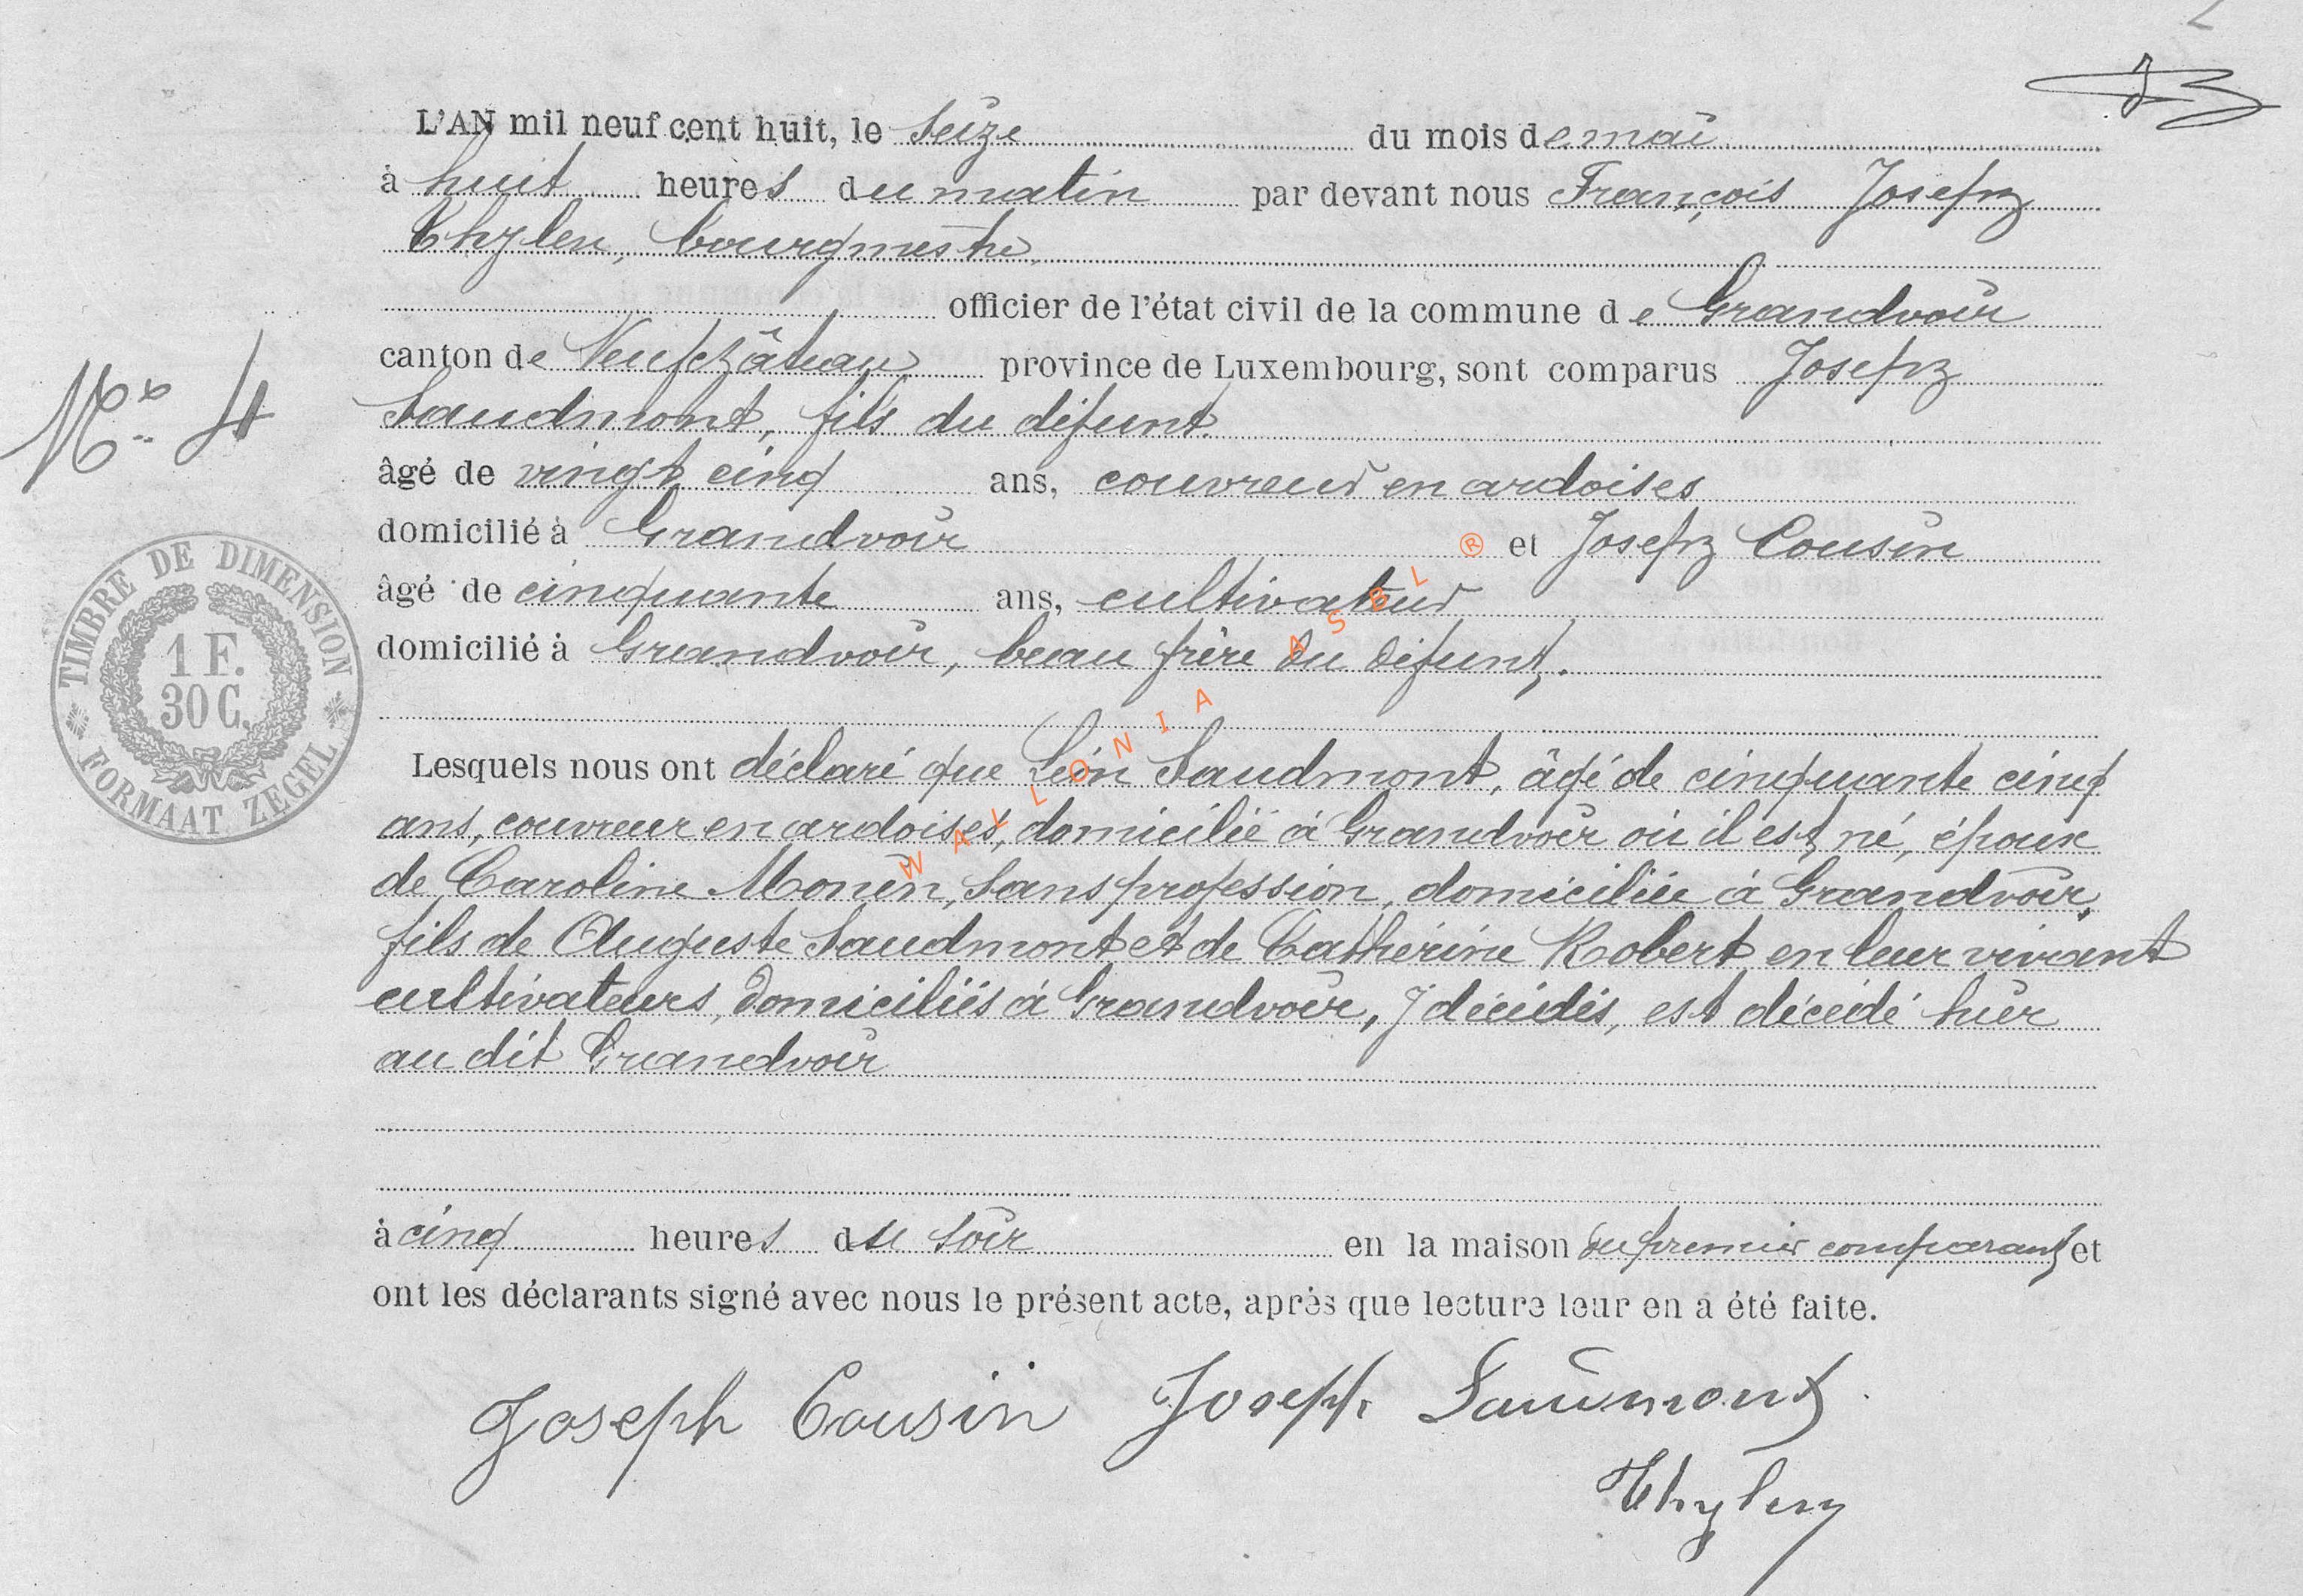 L'AN mil neuf cent huit, le seize du mois de mai
à huit heures du matin par devant nous François Joseph
Thylen, bourgmestre,
officier de l'état civil de la commune de Grandvoir
canton de Neufchâteau province de Luxembourg, sont comparus Joseph
Saudmont, fils du défunt.
âgé de vingt cinq ans, couvreur en ardoises
domicilié à Grandvoir et Joseph Cousin
âgé de cinquante ans, cultivateur
domicilié à Grandvoir, beau frère du défunt.
Lesquels nous ont déclaré que Léon Saudmont, âgé de cinquante cinq
ans, couvreur en ardoises, domicilié à Grandvoir où il est né, époux
de Caroline Monin, sans profession, domiciliée à Grandvoir,
fils de Auguste Saudmont et de Cathérine Robert en leur vivant
cultivateurs, domiciliés à Grandvoir, y décédés, est décédé hier
au dit Grandvoir
à cinq heures du soir en la maison du premier comparant et
ont les déclarants signé avec nous le présent acte, après que lecture leur en a été faite.
Joseph Cousin Joseph Saumont
Thylen
No 4
TIMBRE DE DIMENSION
1 F.
30 C.
FORMAAT ZEGEL
WALLONIA ASBL ®